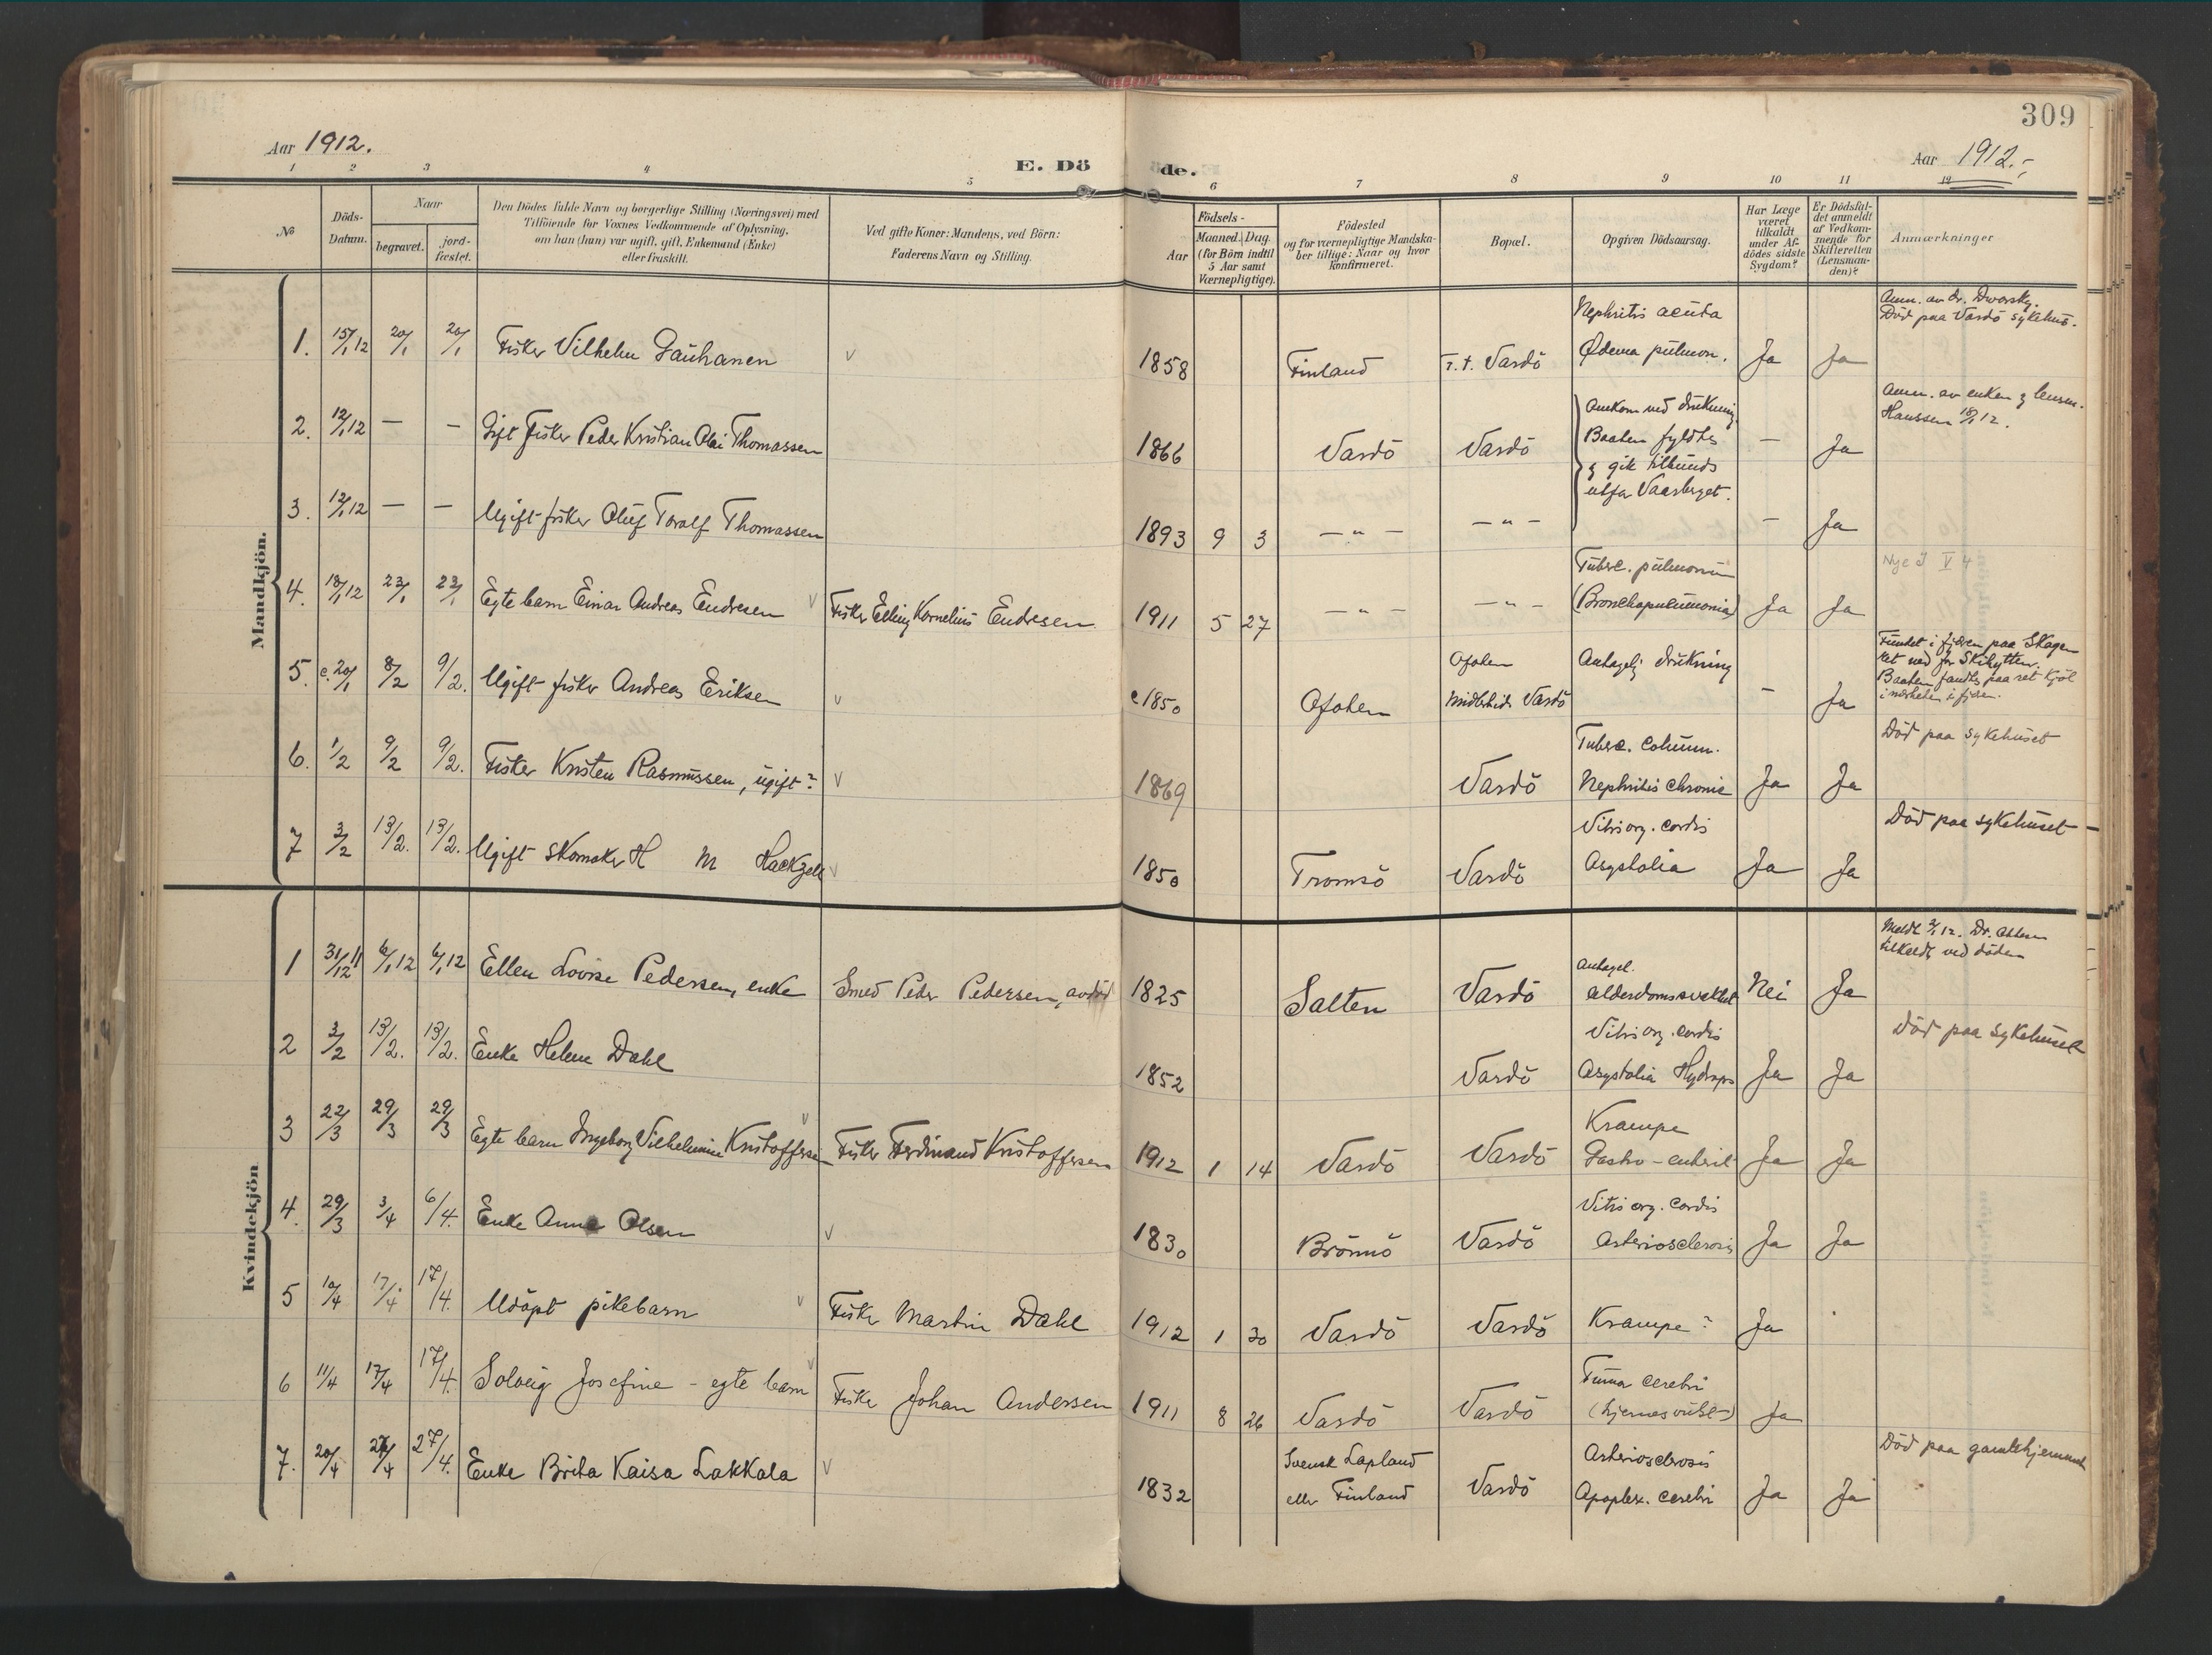 309
Aar 1912.
E. Dö
de.
Aar 1912.
1 2 3 4 5 6 7 8 9 10 11 12
No
Döds-
Datum.
Naar
begravet.
jord-
fæstet.
Den Dödes fulde Navn og borgerlige Stilling (Næringsvei) med
Tilföiende for Voxnes Vedkommende af Oplysning,
om han (hun) var ugift, gift, Enkemand (Enke)
eller fraskilt.
Ved gifte Koner: Mandens, ved Börn:
Faderens Navn og Stilling.
Födsels-
Aar
Maaned. Dag.
(for Börn indtil
5 Aar samt
Værnepligtige).
Födested
og for værnepligtige Mandska-
ber tillige: Naar og hvor
konfirmeret.
Bopæl.
Opgiven Dödsaarsag.
Har Læge
været
tilkaldt
under Af-
dödes sidste
Sygdom?
Er Dödsfal-
det anmeldt
af Vedkom-
mende for
Skifteretten
(Lensman-
den)?
Anmærkninger
Mandkjön.
1. 15/1 12 20/1 20/1 Fisker Vilhelm Gauhanen 1858 Finland F. t. Vardö Nephritis acuta
Ødema pulmon. Ja Ja Anm. av dr. Dworsky.
Död paa Vardö sykehus.
2. 12/1 12 — — Gift fisker Peder Kristian Olai Thomassen 1866 Vardö Vardö Omkom ved drukning.
Baaten fyldtes
& gik tilbunds
utfor Vaarberget. — Ja Anm. av enken & lensm.
Hanssen 18/1 12.
3. 12/1 12 — — Ugift fisker Oluf Toralf Thomassen 1893 9 3 — " — — " — — Ja
4. 18/1 12 23/1 23/1 Egte barn Einar Andreas Endresen Fisker Elling Kornelius Endresen 1911 5 27 — " — — " — Tuberc. pulmonum
(Bronchopneumonia) Ja Ja Nye J V 4
5. c. 20/1 8/2 9/2. Ugift fisker Andreas Eriksen c 1850 Ofoten Ofoten
midlertidig Vardö Antagelig drukning — Ja Fundet i fjæren paa Skagen
ret ned for Skihytten.
Baaten fandtes paa ret kjöl
i nærheten i fjæren.
6. 1/2 9/2 9/2. Fisker Kristen Rasmussen, ugift? 1869 Vardö Tuberc. column.
Nephritis chronic Ja Ja Död paa sykehuset
7 3/2 13/2. 13/2. Ugift skomaker H M Hackzell 1850 Tromsö Vardö Viti org. cordis
Asystolia Ja Ja Död paa sykehuset
Kvindekjön
1 31/12 11 6/1 12 6/1 12 Ellen Lovise Pedersen, enke Smed Peder Pedersen, avdöd 1825 Salten Vardö Antagel.
alderdomssvakhet Nei Ja Meldt 2/1 12. Dr.
tilkaldt ved döden
2 3/2 13/2. 13/2. Enke Helene Dahl 1852 Vardö Viti org. cordis
Asystolia Hydrops Ja Ja Död paa sykehuset
3 22/3 29/3 29/3 Egte barn Ingeborg Vilhelmine Kristoffersen Fisker Ferdinand Kristoffersen 1912 1 14 Vardö Vardö Krampe
Gastro-enterit Ja Ja
4. 29/3 3/4 6/4. Enke Anna Olsen 1830 Brönnö Vardö Viti org. cordis
Arteriosclerosis Ja Ja
5 10/4 17/4 17/4. Udöpt pikebarn Fisker Martin Dahl 1912 1 30 Vardö Vardö Krampe? Ja
6 11/4 17/4 17/4. Solveig Josefine - egte barn Fisker Johan Andersen 1911 8 26 Vardö Vardö cerebri
(hjernesvulst) Ja
7. 20/4 27/4 27/4. Enke Brita Kaisa Lakkala 1832 Svensk Lapland
eller Finland Vardö Arteriosclerosis
Apoplex. cerebri Ja Ja Död paa gamlehjemmet